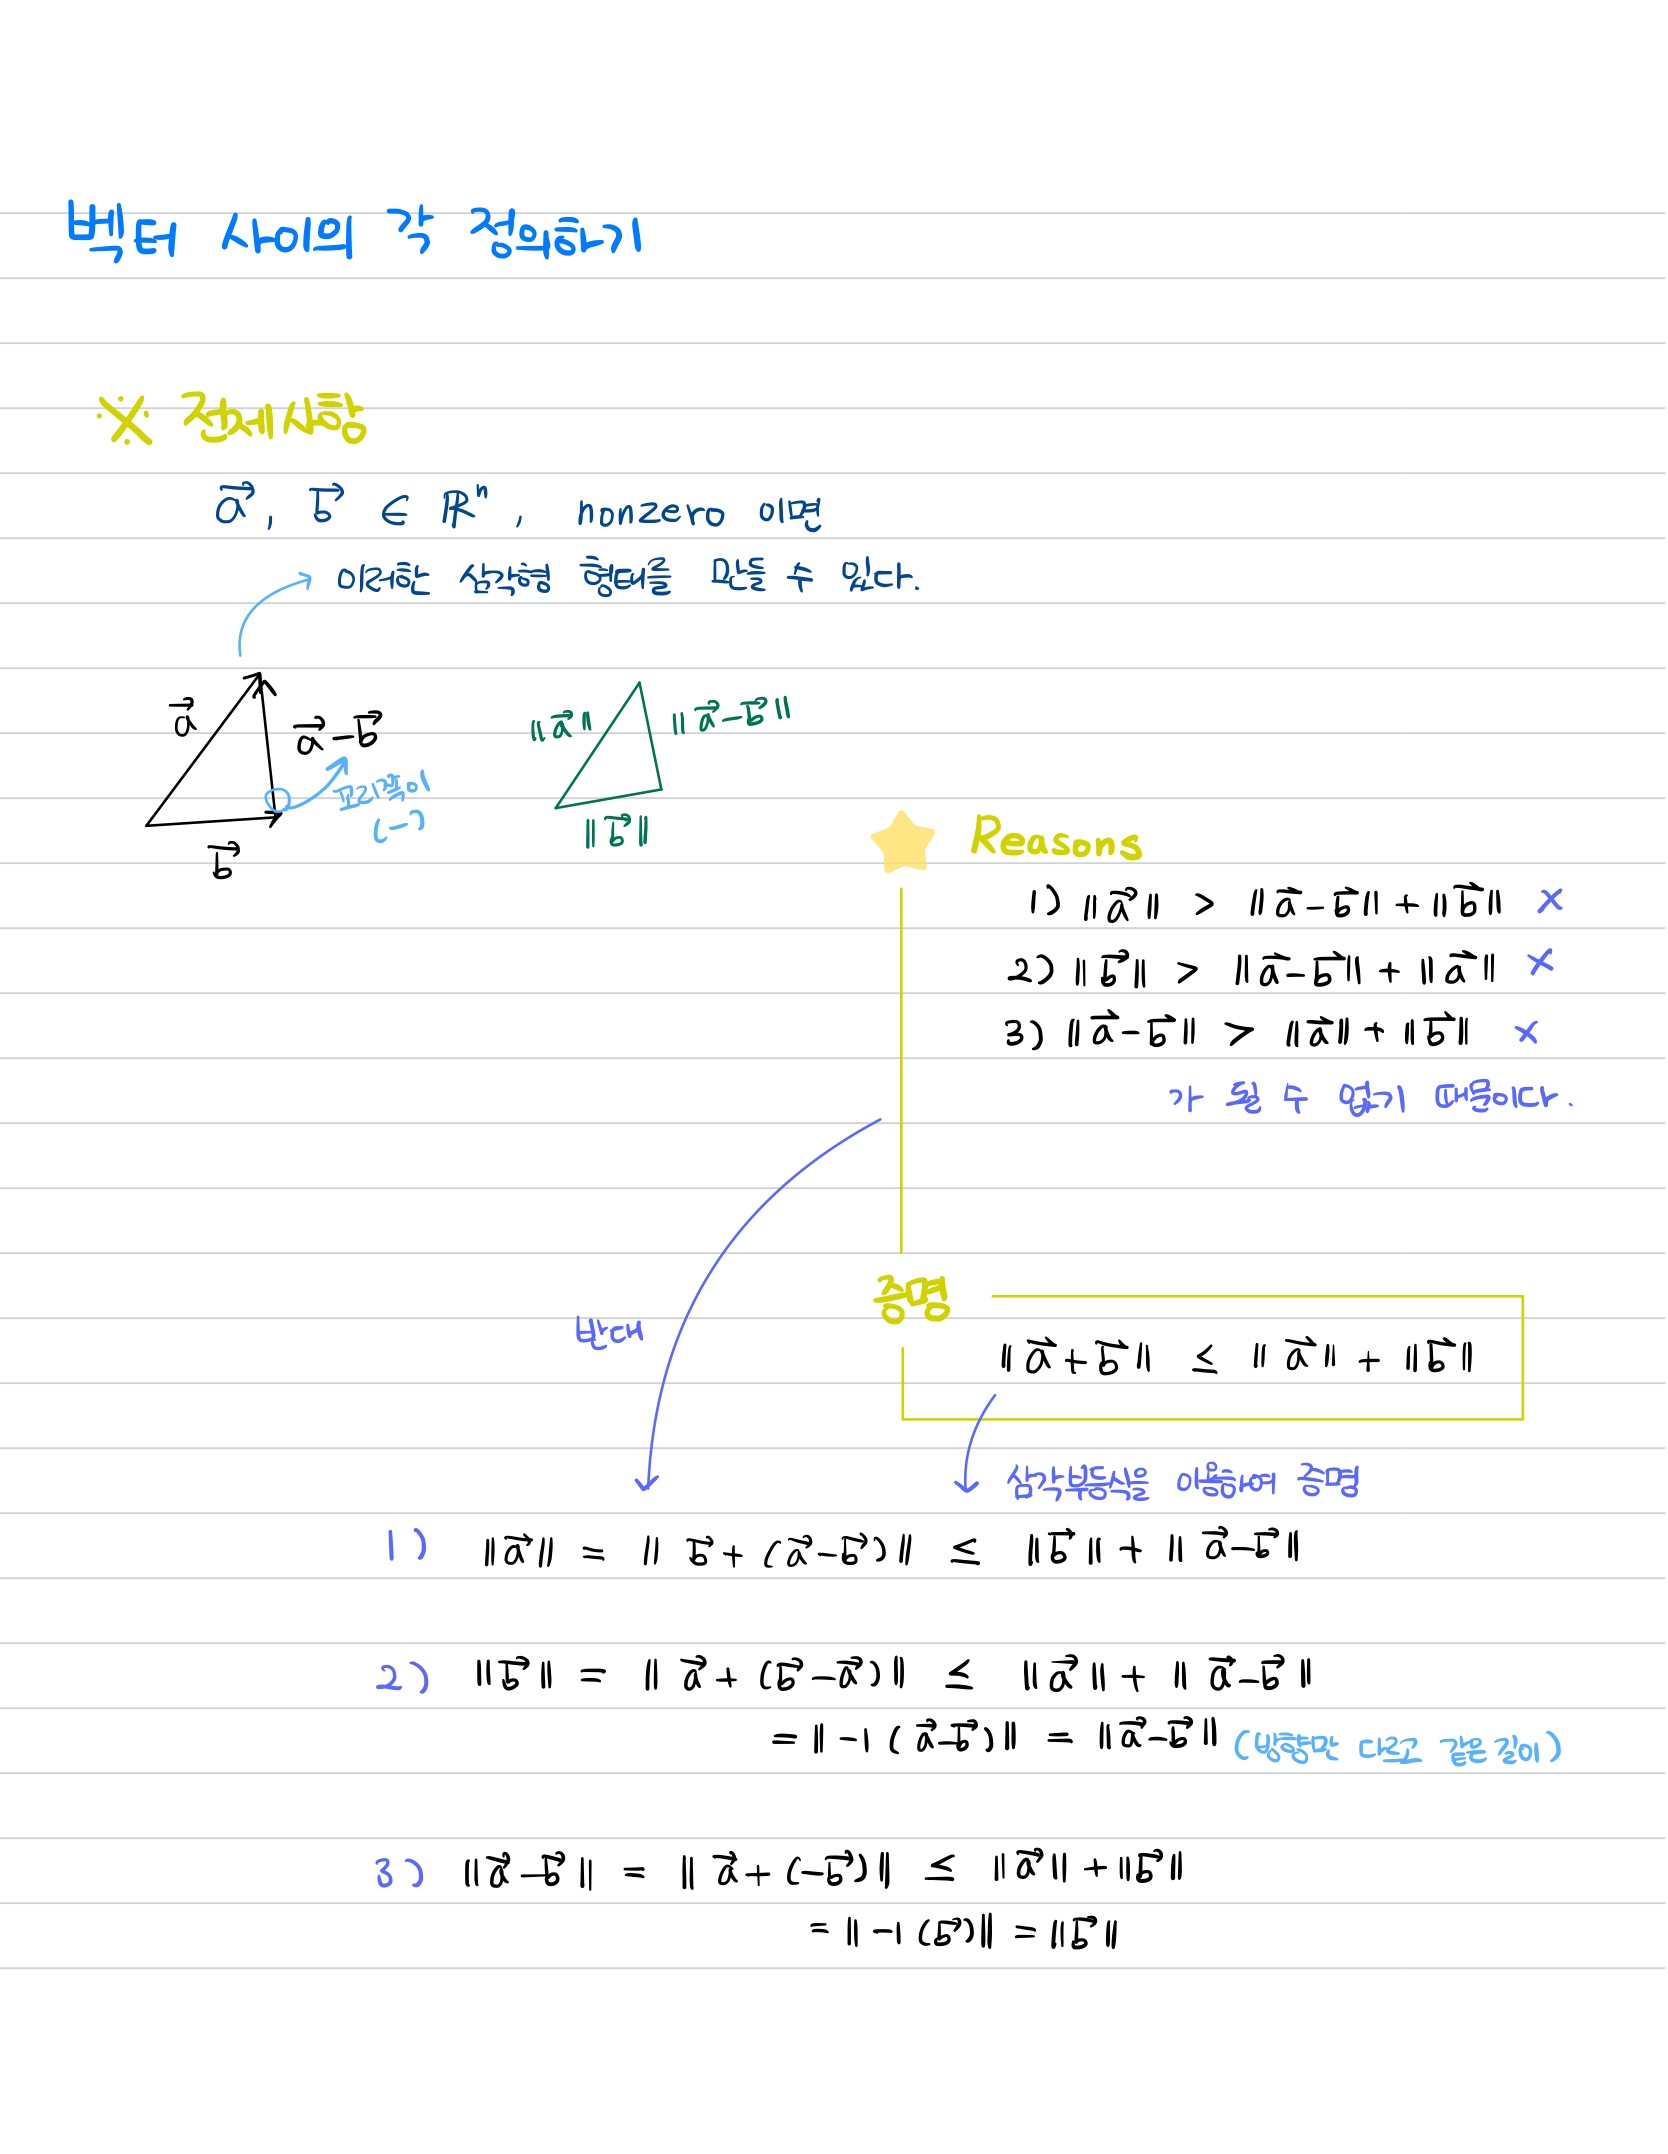 벡터 사이의 각 정의하기
※ 전제사항
a⃗, b⃗ ∈ ℝⁿ, nonzero 이면
이러한 삼각형 형태를 만들 수 있다.
a⃗
a⃗-b⃗
꼬리쪽이
(-)
b⃗
‖a⃗‖
‖a⃗-b⃗‖
‖b⃗‖
Reasons
1) ‖a⃗‖ > ‖a⃗-b⃗‖ + ‖b⃗‖ ×
2) ‖b⃗‖ > ‖a⃗-b⃗‖ + ‖a⃗‖ ×
3) ‖a⃗-b⃗‖ > ‖a⃗‖ + ‖b⃗‖ ×
가 될 수 없기 때문이다.
증명
‖a⃗+b⃗‖ ≤ ‖a⃗‖ + ‖b⃗‖
반대
삼각부등식을 이용하여 증명
1) ‖a⃗‖ = ‖b⃗+(a⃗-b⃗)‖ ≤ ‖b⃗‖ + ‖a⃗-b⃗‖
2) ‖b⃗‖ = ‖a⃗+(b⃗-a⃗)‖ ≤ ‖a⃗‖ + ‖a⃗-b⃗‖
= ‖-1(a⃗-b⃗)‖ = ‖a⃗-b⃗‖ (방향만 다르고 같은 길이)
3) ‖a⃗-b⃗‖ = ‖a⃗+(-b⃗)‖ ≤ ‖a⃗‖ + ‖b⃗‖
= ‖-1(b⃗)‖ = ‖b⃗‖